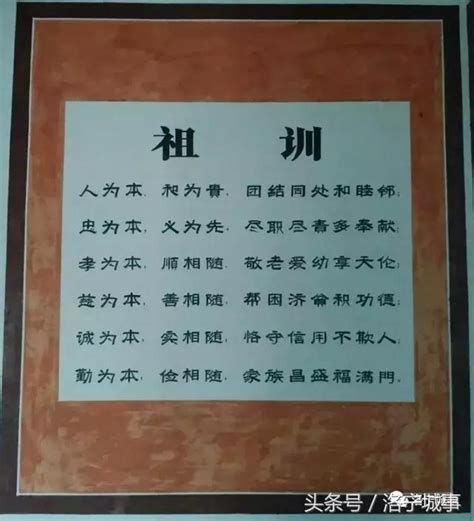 祖 训
人为本，和为贵，团结同处和睦邻；
忠为本，义为先，尽职尽责多奉献；
孝为本，顺相随，敬老爱幼享天伦；
慈为本，善相随，帮困济积功德；
诚为本，实相随，恪守信用不欺人；
勤为本，俭相随，家族昌盛福满门。
头条号／洛宁城事